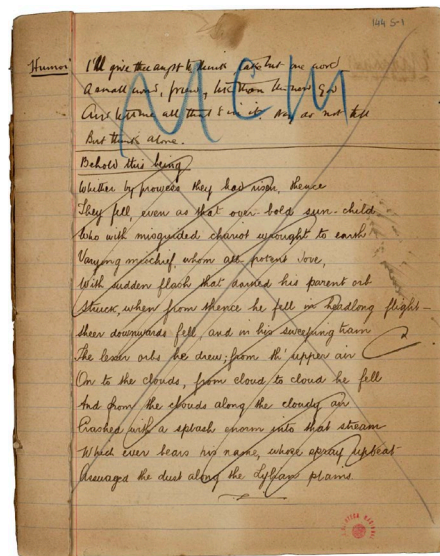 144 S-1
Humor I'll give thee aught to think take but one word
A small word, friend, less than
And all that's in it. as not till
But think alone.
MCM
Behold this being
Whether by prowess they had risen, thence
They fell, even as that over-bold sun-child
Who with misguided chariot wrought to earth
Varying mischief, whom all-potent Jove,
With sudden flash that darned his parent orb
Struck, when from thence he fell in headlong flight—
Sheer downwards fell, and in his sweeping train
The lesser orbs he drew; from th' upper air
On to the clouds, from cloud to cloud he fell
And from the clouds along the cloudy air
Crashed with a splash enorm into that stream
Which ever bears his name, whose spray upbeat
Assuaged the dust along the Lybian plains